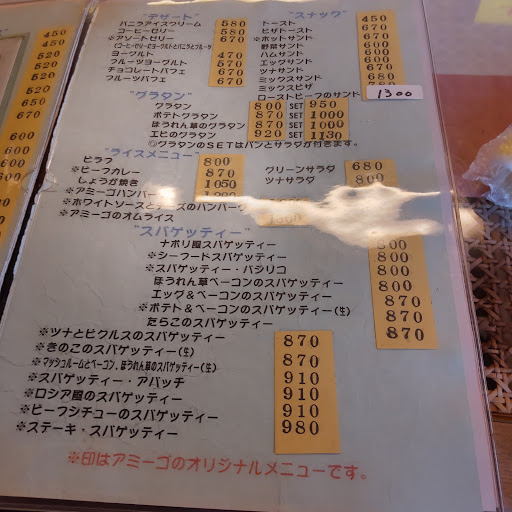 450
520
520
520
650
670
600
600
600
"デザート"
バニラアイスクリーム 580
コーヒーゼリー 580
※アソートゼリー 670
(コーヒーゼリーにヨーグルトとバニラとフルーツ
ヨーグルト 470
フルーツヨーグルト 570
チョコレートパフェ 670
フルーツパフェ 670
"スナック"
トースト 450
ピザトースト 670
※ホットサンド 670
野菜サンド 600
ハムサンド 600
エッグサンド 600
ツナサンド 600
ミックスサンド 670
ミックスピザ
ローストビーフのサンド 1300
"グラタン"
グラタン 800 SET 950
ポテトグラタン 870 SET 1000
ほうれん草のグラタン 870 SET 1000
エビのグラタン 920 SET 1130
◎グラタンのSETはパンとサラダが付きます。
"ライスメニュー"
ピラフ 800
※ビーフカレー 870
しょうが焼き 1050
※アミーゴハンバーグ
※ホワイトソースとチーズのハンバーグ
※アミーゴのオムライス
グリーンサラダ 680
ツナサラダ 800
"スパゲッティー"
ナポリ風スパゲッティー
※シーフードスパゲッティー
※スパゲッティー・バジリコ 800
ほうれん草ベーコンのスパゲッティー 800
エッグ&ベーコンのスパゲッティー 870
※ポテト&ベーコンのスパゲッティー(生) 870
たらこのスパゲッティー 870
※ツナとピクルスのスパゲッティー 870
※きのこのスパゲッティー(生) 870
※マッシュルームとベーコン、ほうれん草のスパゲッティー(生) 910
※スパゲッティー・アパッチ 910
※ロシア風のスパゲッティー 910
※ビーフシチューのスパゲッティー 980
※ステーキ・スパゲッティー
※印はアミーゴのオリジナルメニューです。